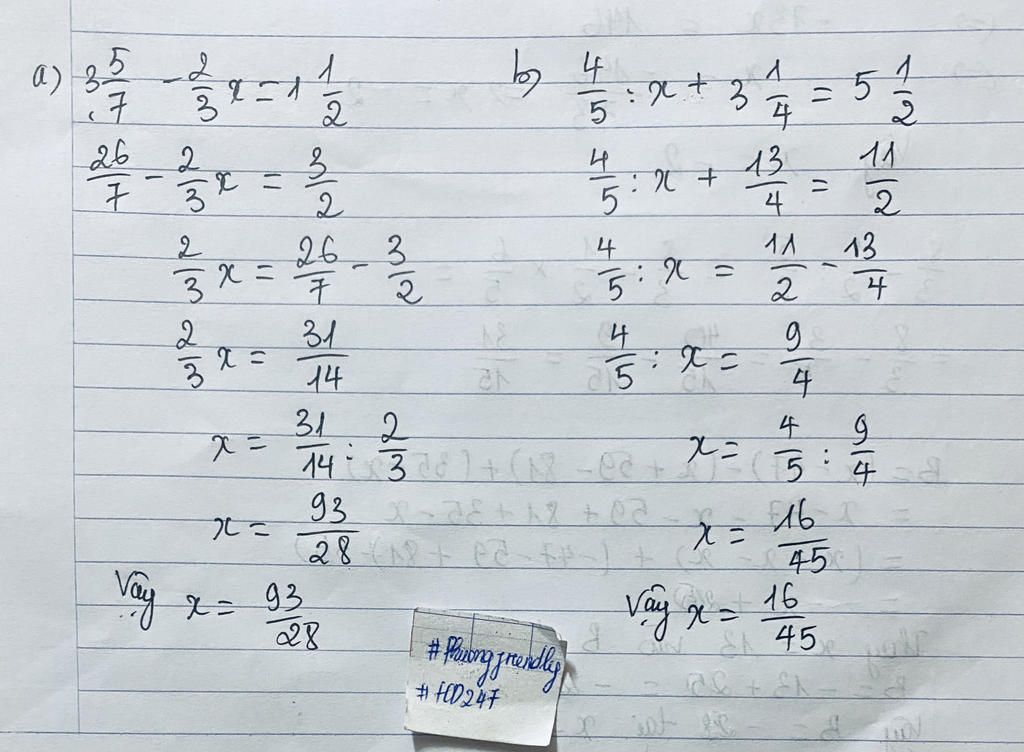 a) 3 5/7 - 2/3 x = 1 1/2
26/7 - 2/3 x = 3/2
2/3 x = 26/7 - 3/2
2/3 x = 31/14
x = 31/14 : 2/3
x = 93/28
Vậy x = 93/28
b) 4/5 : x + 3 1/4 = 5 1/2
4/5 : x + 13/4 = 11/2
4/5 : x = 11/2 - 13/4
4/5 : x = 9/4
x = 4/5 : 9/4
x = 16/45
Vậy x = 16/45
#Phuongfriendly
#HD247